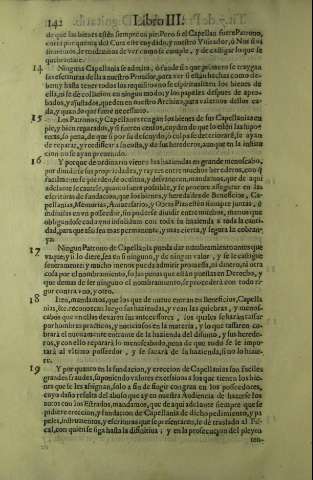 142 Libro III.
de que los bienes estèn siempre en pie: Pero si el Capellan fuere Patrono,
correrà por quenta del Cura este cuydado, y nuestro Visitador, ò Nos si visi
taremos, le tendremos de ver como se cumple, y de castigar lo que se
quebrantare.
14 Ninguna Capellania se admita, ò funde sin que primero se traygan
las escrituras della a nuestro Provisor, para ver si estàn hechas como de-
ben; y hasta tener todos los requisitos no se espiritualizen los bienes de
ella, ni se dè collation en ningun modo; y los papeles despues de apro-
bados, y ajustados, queden en nuestro Archivo, para valernos dellos ca-
da, y quando que fuere necessario.
15 Los Patronos, y Capellanes tengan los bienes de sus Capellanias en
pie, y bien reparados, y si fueren censos, cuyden de que lo estèn las hypo-
recas, so pena, de que si por su descuydo, ò culpa se deterioraren, lo ayan
de reparar, y reedificar a su costa, y de sus herederos, aunque en la institu-
cion no se aya prevenido.
16 Y porque de ordinario vienen las haziendas en grande menoscabo,
por dividirse sus propriedades, y rayzes entre muchos herederos, con q̃
facilmente se pierden, se ocultan, y desvanecen, mandamos, que de aqui
adelante se cautele, quanto fuere possible, y se procure assegurar en las
escrituras de fundacion, que los bienes, y heredades de Beneficios, Ca-
pellanias, Memorias, Aniversarios, y Obras Pias estèn siempre juntas, è
indivisas en vn posseedor, sin poderse dividir entre muchos, menos que
obligandose cada vno insolidum con toda su hazienda a toda la canti-
dad, para que assi sea mas permanente, y mas cierta, y segura la cobran-
ça.
17 Ningun Patrono de Capellania pueda dar nombramiento antes que
vaque; y si lo diere, sea en si ninguno, y de ningun valor, y se le castigue
severamente; y mucho menos pueda admitir promessa, ni dinero, ni otra
cosa por el nombramiento, so las penas que estàn puestas en Derecho, y
que demàs de ser ninguno el nombramiento, se procederà con todo ri-
gor contra vno, y otro.
18 Iten, mandamos, que los que de nuevo entran en Beneficios, Capella
nias, &c. reconozcan luego sus haziendas, y vean las quiebras, y menos-
cabos que en ellas dexaren sus antecessores, los quales se haràn tassar
por hombres practicos, y noticiosos en la materia, y lo que tassaren co-
brarà el nuevamente entrante de la hazienda del difunto, y sus herede-
ros, y con ello reparará lo menoscabado, pena de que todo se le impu-
tarà al vltimo posseedor, y se sacarà de su hazienda, si no lo hizie-
re.
19 Y por quanto en la fundacion, y ereccion de Capellanias son faciles
grandes fraudes, suponiendo valores excessivos a los que tienen los bie-
nes que se les assignan, solo a fin de fingir congrua en los posseedores,
cuyo daño resulta del abuso que ay en nuestra Audiencia de hazerse los
autos con los Estrados, mandamos, que de aqui adelante siempre que se
pidiere ereccion, y fundacion de Capellania de dicho pedimiento, y pa-
peles, instrumentos, y escrituras que se presentaren, se dè traslado al Fis-
cal, con quien se siga hasta la difinitiva; y en la prosecucion del pleyto
ten-